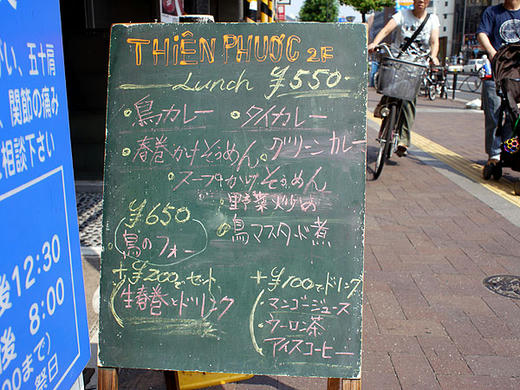 THIÊN PHƯỚC 2F
Lunch ¥550-
・鳥カレー ・タイカレー
・春巻かけそうめん ・グリーンカレー
・スープかけそうめん
・野菜炒め
・鳥マスタード煮
¥650
鳥のフォー
+¥200でセット
生春巻とドリンク
+¥100でドリンク
マンゴージュース
ウーロン茶
アイスコーヒー
五十肩
関節の痛み
相談下さい
後12:30
後 8:00
まで)
祭日